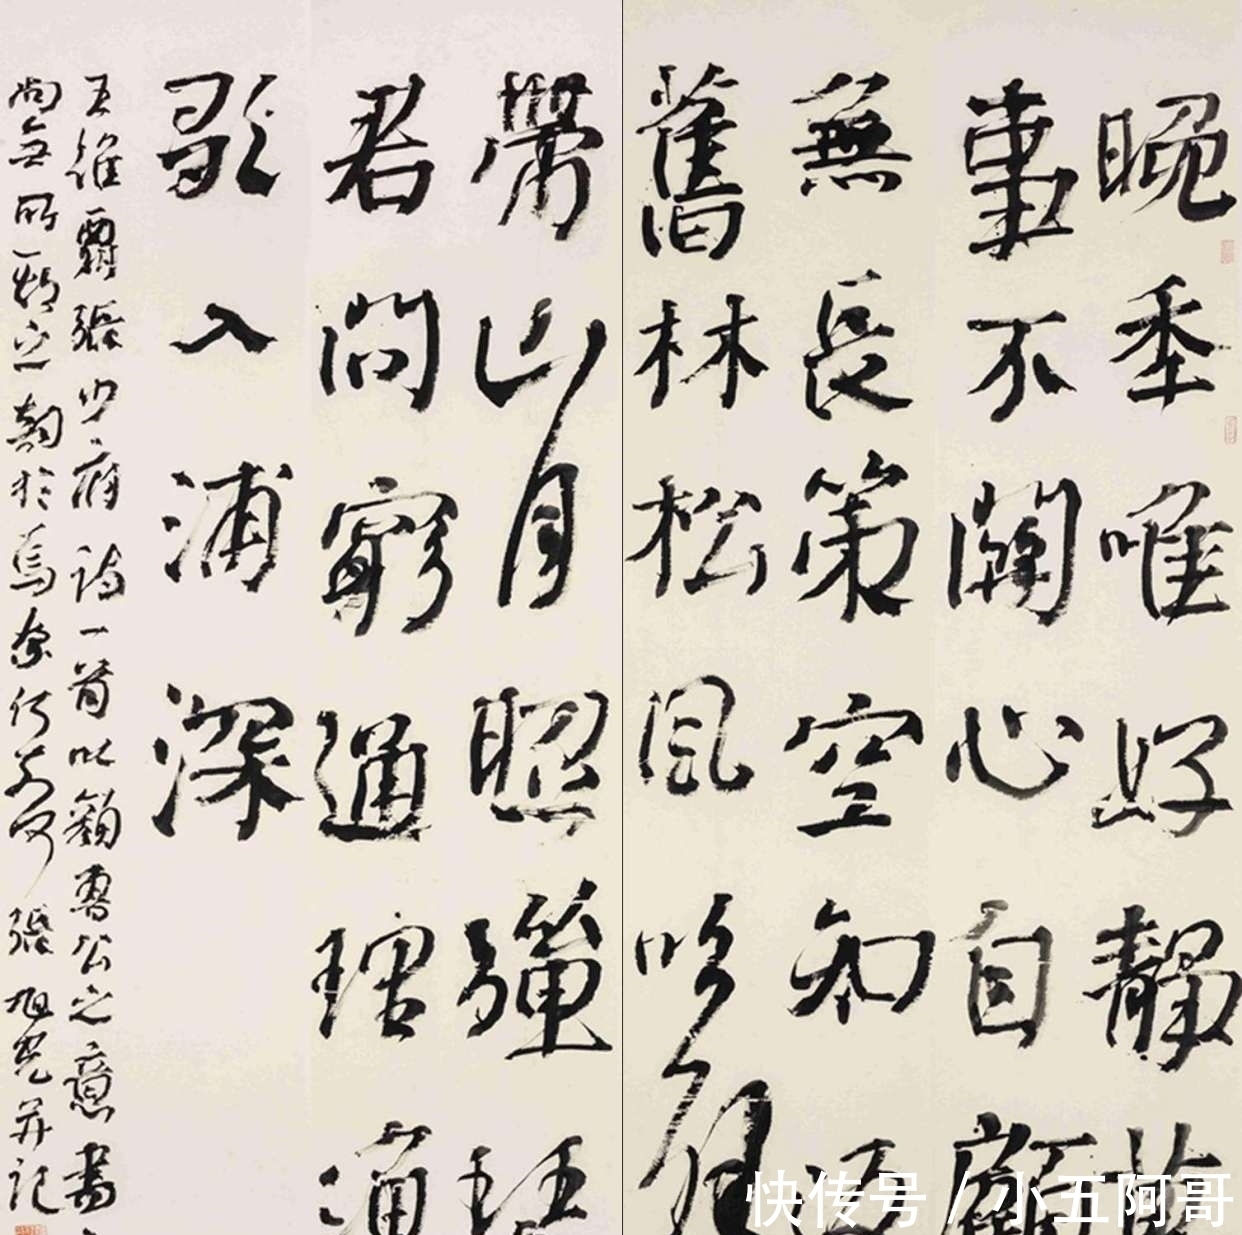 晚秊唯好靜萬
事不關心自顧
無長策空知返
舊林松風吹解
帶山月照彈琴
君問窮通理漁
歌入浦深
王維酬張少府詩一首以顏魯公之意書
尚無所之於焉奈何奈何 張旭光并記
快传号 / 小五阿哥